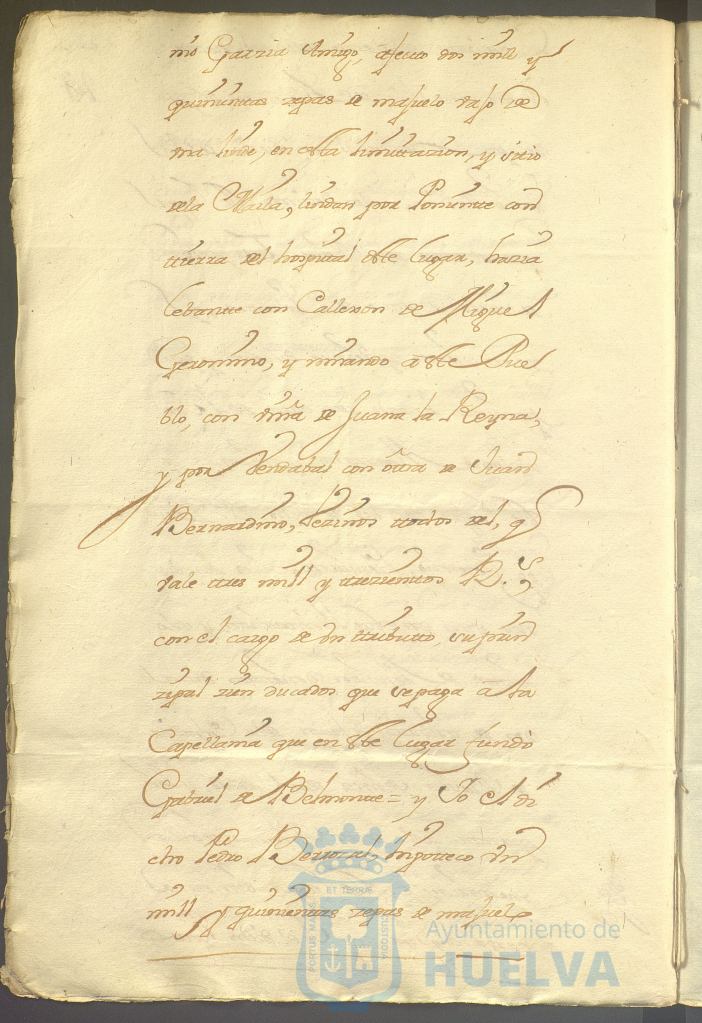 mo Garzia Amigo, afecto dos mill y
quinientas zepas de majuelo vajo de
vna linde, en esta limittacion, y sitio
de la Malla, lindan por Poniente con
ttierra del hospital deste lugar, hazia
Lebante con Callexon de Miguel
Geronimo, y mirando a este Pue
blo, con viña de Juana la Reyna,
y por Vendabal con otra de Juan
Bernardino, Vezinos ttodos del, q
vale tres mill y ttrezientos R.s
con el cargo de vn ttributto, su prin
zipal zien ducados que se paga a la
Capellania que en este lugar fundò
Gabriel de Belmonte = y Yo el di
cho Pedro Berrocal, hipoteco vn
mill y quinientas zepas de majuelo
PORTUS MARIS ET TERRAE CUSTODIA
Ayuntamiento de
HUELVA